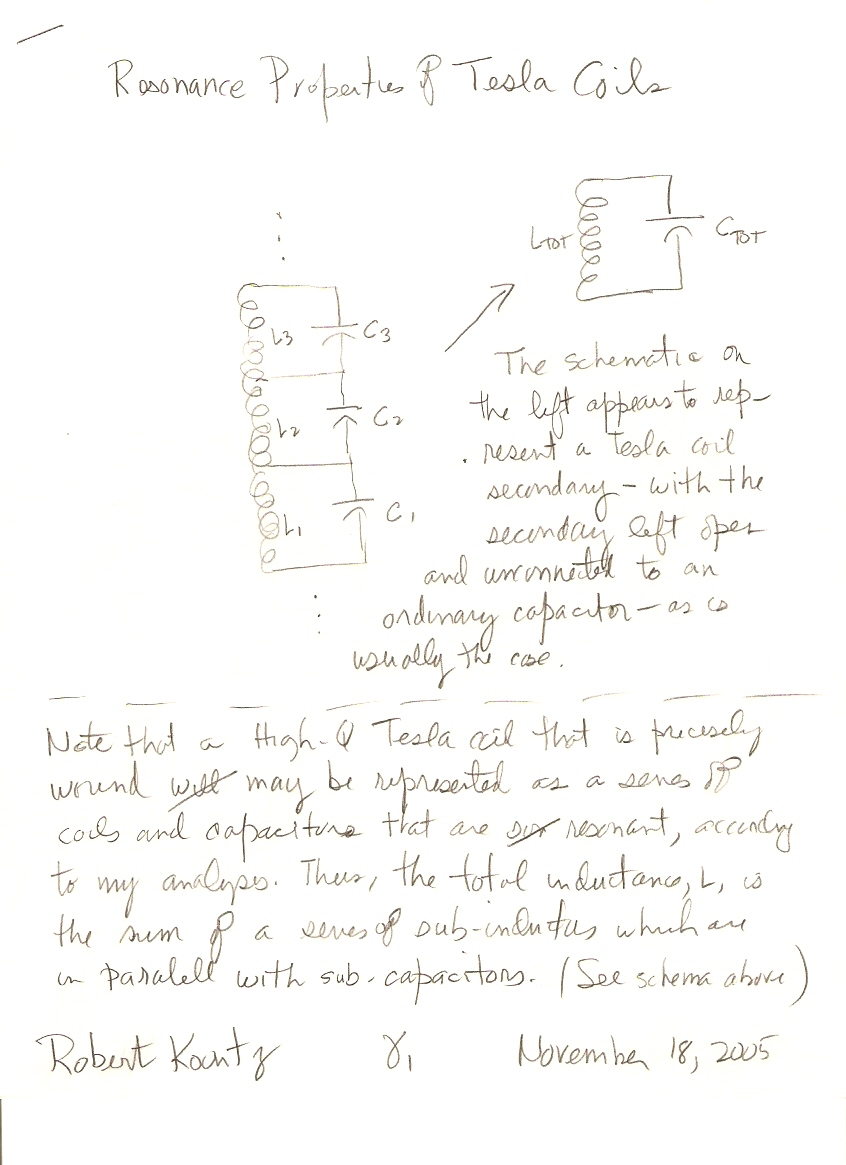 Resonance Properties of Tesla Coils
LTOT
CTOT
L3
C3
L2
C2
L1
C1
The schematic on
the left appears to rep-
resent a Tesla coil
secondary - with the
secondary left open
and unconnected to an
ordinary capacitor - as is
usually the case.
Note that a High-Q Tesla coil that is precisely
wound will may be represented as a series of
coils and capacitors that are resonant, according
to my analysis. Thus, the total inductance, L, is
the sum of a series of sub-inductors which are
in paralell with sub-capacitors. (See schema above)
Robert Kountz γ1 November 18, 2005